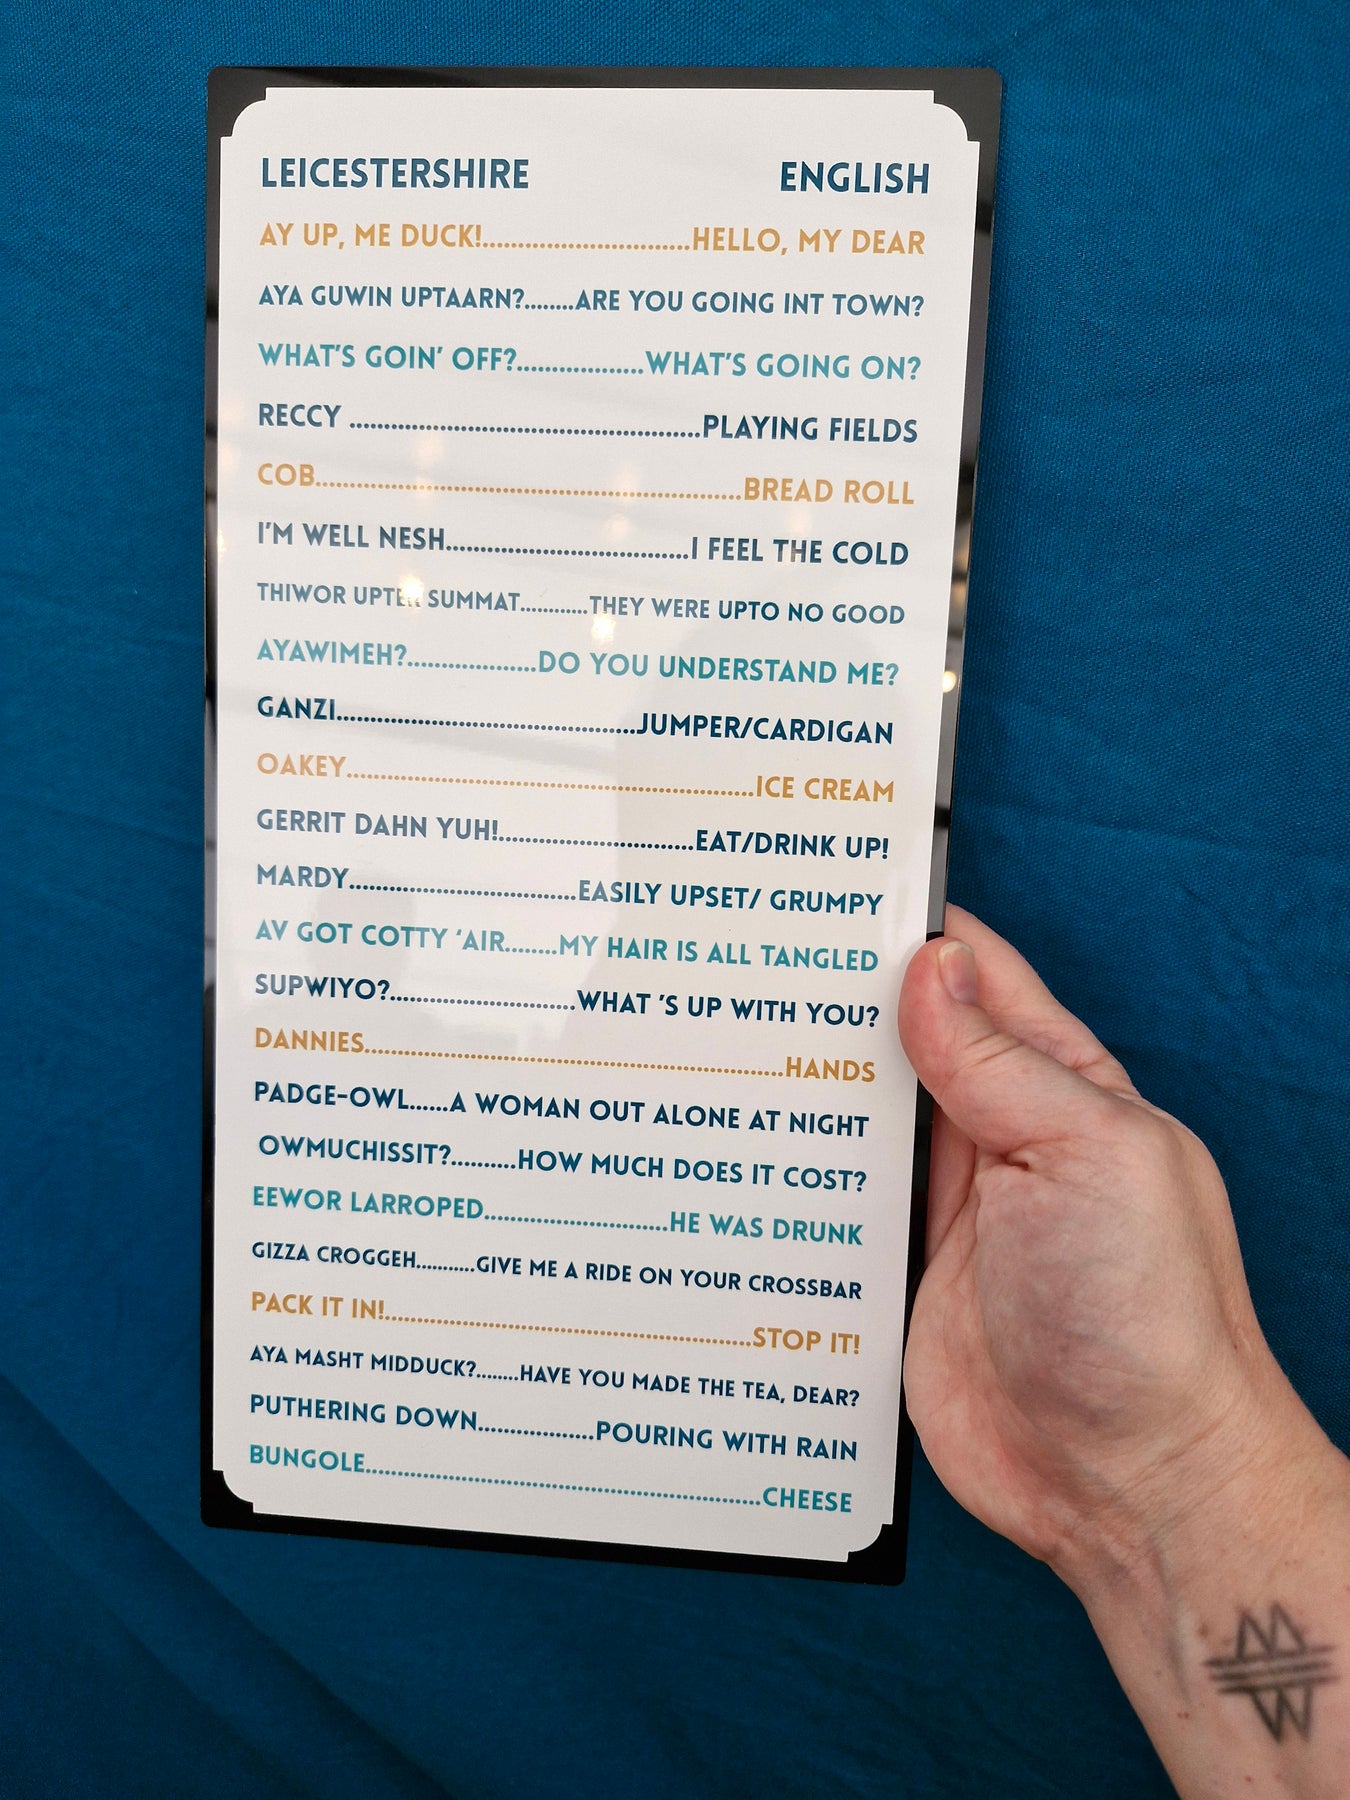 LEICESTERSHIRE ENGLISH
AY UP, ME DUCK!..............................HELLO, MY DEAR
AYA GUWIN UPTAARN?........ARE YOU GOING INT TOWN?
WHAT'S GOIN' OFF?...................WHAT'S GOING ON?
RECCY ....................................................PLAYING FIELDS
COB...............................................................BREAD ROLL
I'M WELL NESH....................................I FEEL THE COLD
THIWOR UPTER SUMMAT............THEY WERE UPTO NO GOOD
AYAWIMEH?...................DO YOU UNDERSTAND ME?
GANZI............................................JUMPER/CARDIGAN
OAKEY............................................................ICE CREAM
GERRIT DAHN YUH!.............................EAT/DRINK UP!
MARDY..................................EASILY UPSET/ GRUMPY
AV GOT COTTY 'AIR........MY HAIR IS ALL TANGLED
SUPWIYO?...........................WHAT 'S UP WITH YOU?
DANNIES..............................................................HANDS
PADGE-OWL......A WOMAN OUT ALONE AT NIGHT
OWMUCHISSIT?..........HOW MUCH DOES IT COST?
EEWOR LARROPED...........................HE WAS DRUNK
GIZZA CROGGEH...........GIVE ME A RIDE ON YOUR CROSSBAR
PACK IT IN!......................................................STOP IT!
AYA MASHT MIDDUCK?........HAVE YOU MADE THE TEA, DEAR?
PUTHERING DOWN.................POURING WITH RAIN
BUNGOLE..........................................................CHEESE